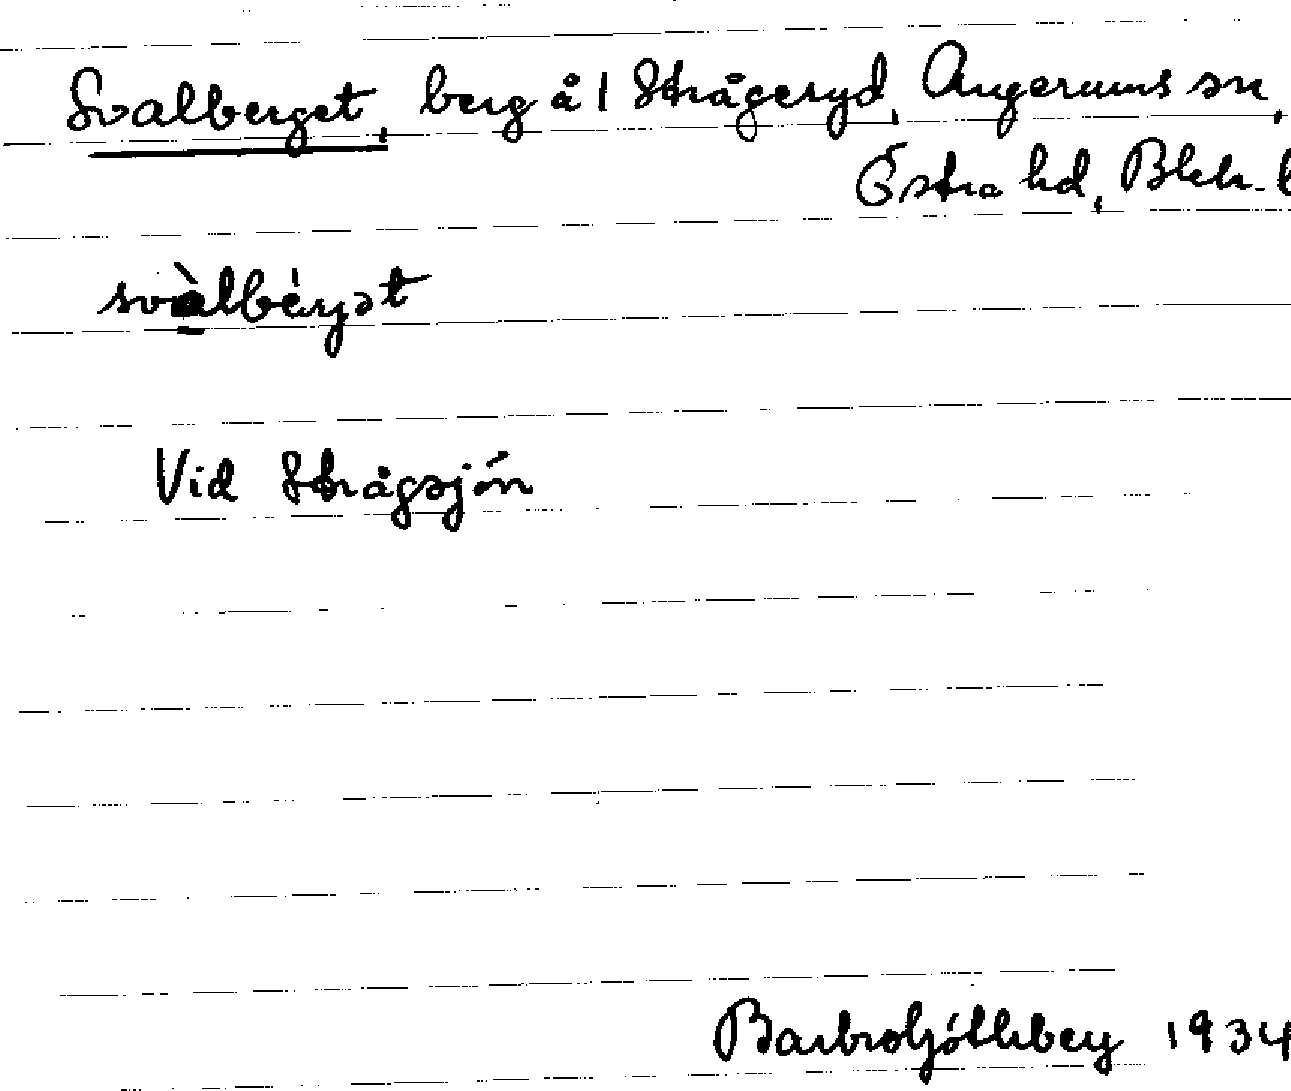 Svalberget, berg å 1 Strågeryd, Augerums sn,
Östra hd, Blek. l
svàlbérjət
Vid Strågsjön
Barbro Götlberg 1934